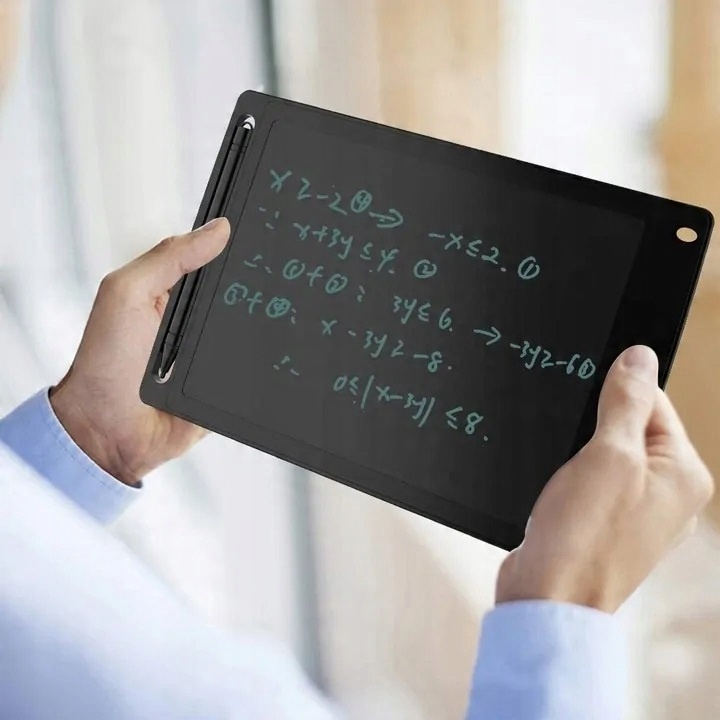 x ≥ -2 ④ → -x ≤ 2. ①
∵ x+3y ≤ 4. ②
∴ ①+②: 3y ≤ 6. → -3y ≥ -6 ③
③+④: x-3y ≥ -8.
∴ 0≤|x-3y| ≤ 8.